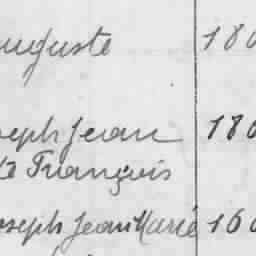 uguste 180
oseph Jean 180
François
oseph Jean Marie 160